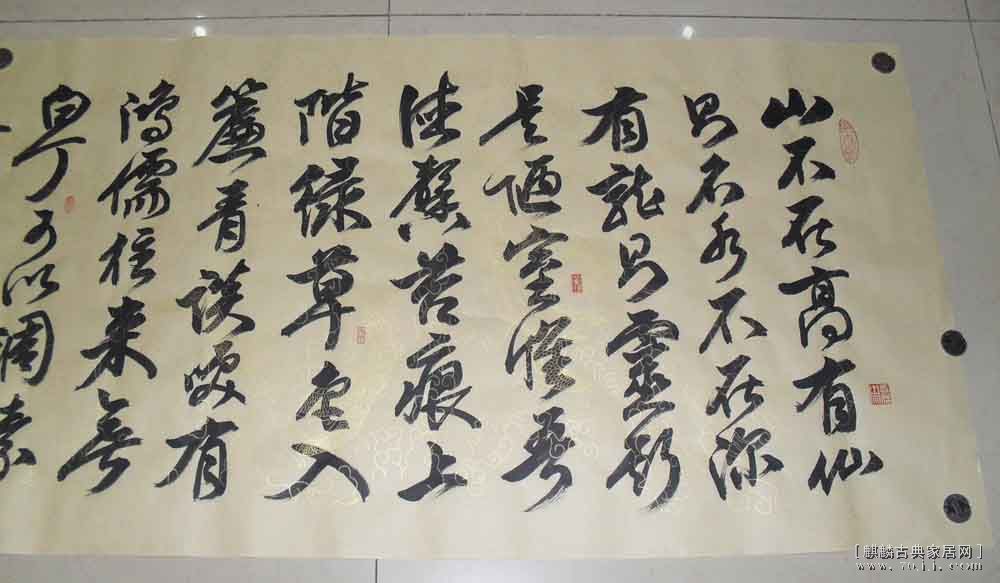 山不在高有仙
則名水不在深
有龍則靈斯
是陋室惟吾
德馨苔痕上
階緑草色入
簾青談笑有
鴻儒往來無
白丁可以調素
[麒麟古典家居网]
www.7ojj.com